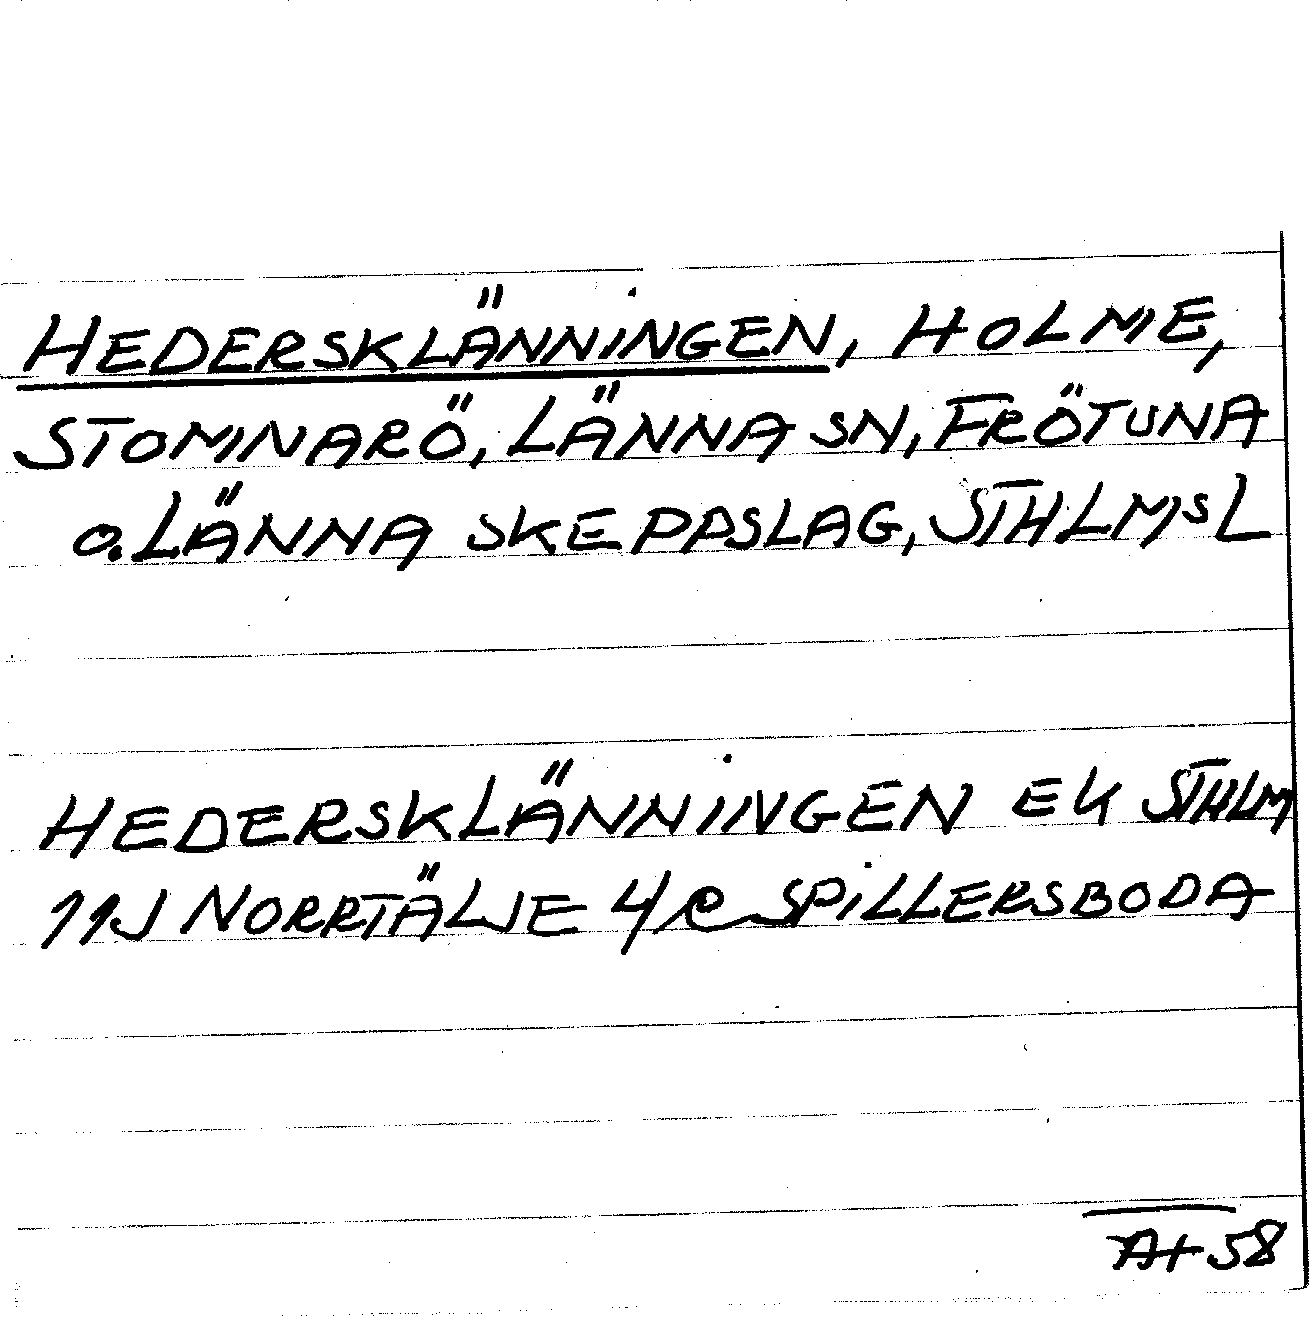 HEDERSKLÄNNINGEN, HOLME,
STOMNARÖ, LÄNNA SN, FRÖTUNA
o. LÄNNA SKEPPSLAG, STHLMS L
HEDERSKLÄNNINGEN EK STHLM
11J NORRTÄLJE 4/e SPILLERSBODA
58